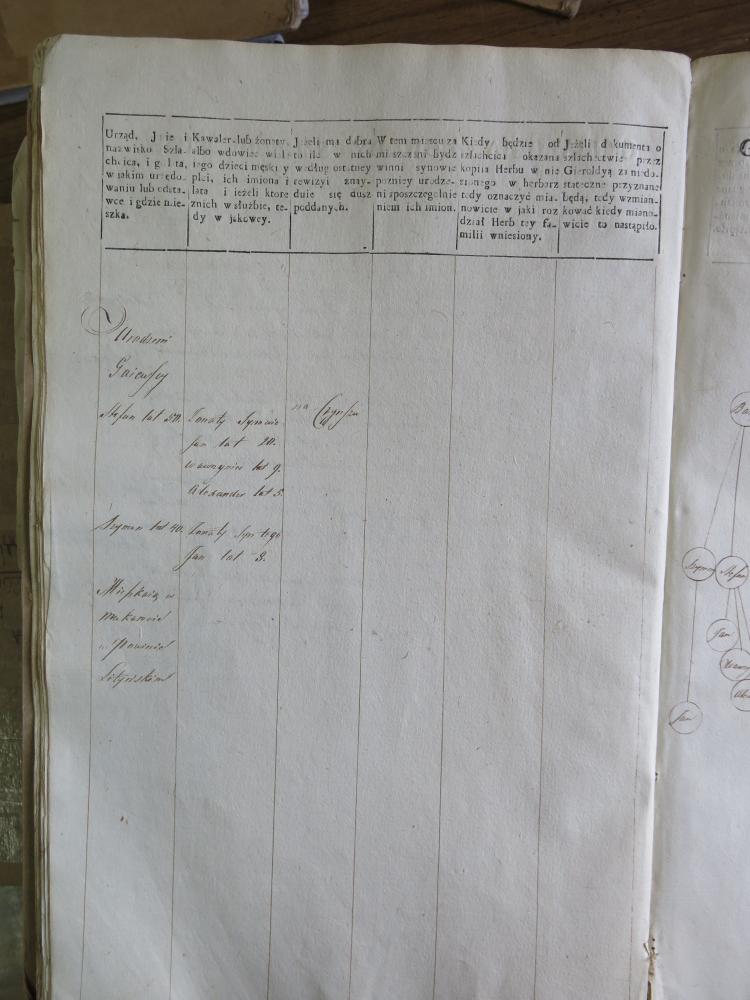 Urząd, Imie i
nazwisko Szla-
chcica, i gdzie,
w jakim urzędo-
waniu lub odsta-
wce i gdzie mie-
szka.
Kawaler lub żonaty,
albo wdowiec wiele
iego dzieci męskiey
płci, ich imiona i
lata i ieżeli ktore
znich w służbie, te-
dy w jakowey.
Jeżeli ma dobra
to ile w nich
według ostatney
rewizyi znay-
duie się dusz
poddanych.
W tem miescu za
mieszczani bydz
winni synowie
pozniey urodze-
ni z poszczególnie
niem ich imion.
Kiedy będzie od
szlachcica okazana
kopiia Herbu w nie
sionego w herbarz
tedy oznaczyć mia-
nowicie w jaki roz
dział Herb tey fa-
milii wniesiony.
Jeżeli dokumenta o
szlachectwie przez
Gieroldyą za niedo-
stateczne przyznane
będą, tedy wzmian-
kować kiedy miano-
wicie to nastąpiło.
Urodzeni
Gaiewscy
Stefan lat 50.
Żonaty Synowie
Jan lat 20.
Wawrzyniec lat 9.
Alexander lat 5.
na Czynszu
Szymon lat 40.
Żonaty Syn tego
Jan lat 3.
Mieszkaią w
w Powiecie
Lityńskim
Szymon
Stefan
Jan
Jan